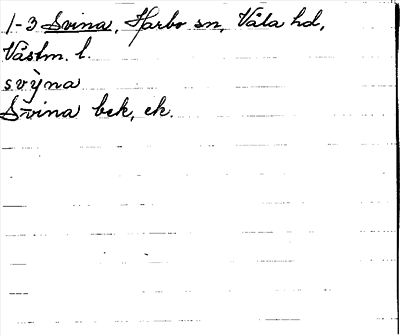 1-3 Svina, Harbo sn, Våla hd,
Västm. l.
svỳna
Svina bek, ek.